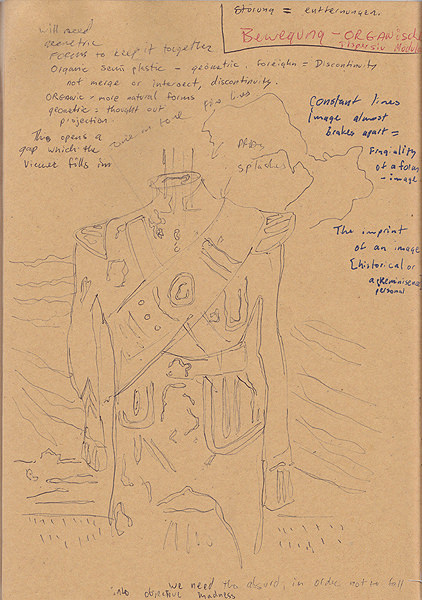 Störung = entternungen.
Bewegung – ORGANische
Dispersiv Module
will need
geometric
FORCES to keep it together
Organic semi plastic – geometric. foreighn = Discontinuity
not merge or intersect, discontinuity.
ORGANIC – more natural forms
geometric = thought out
projection
This opens a
gap which the
viewer fills in
Constant lines
Image almost
brakes apart =
Fragiality
of a form
– image
splashes
The imprint
of an image
[historical or
personal
we need the absurd, in order not to fall
into objective madness